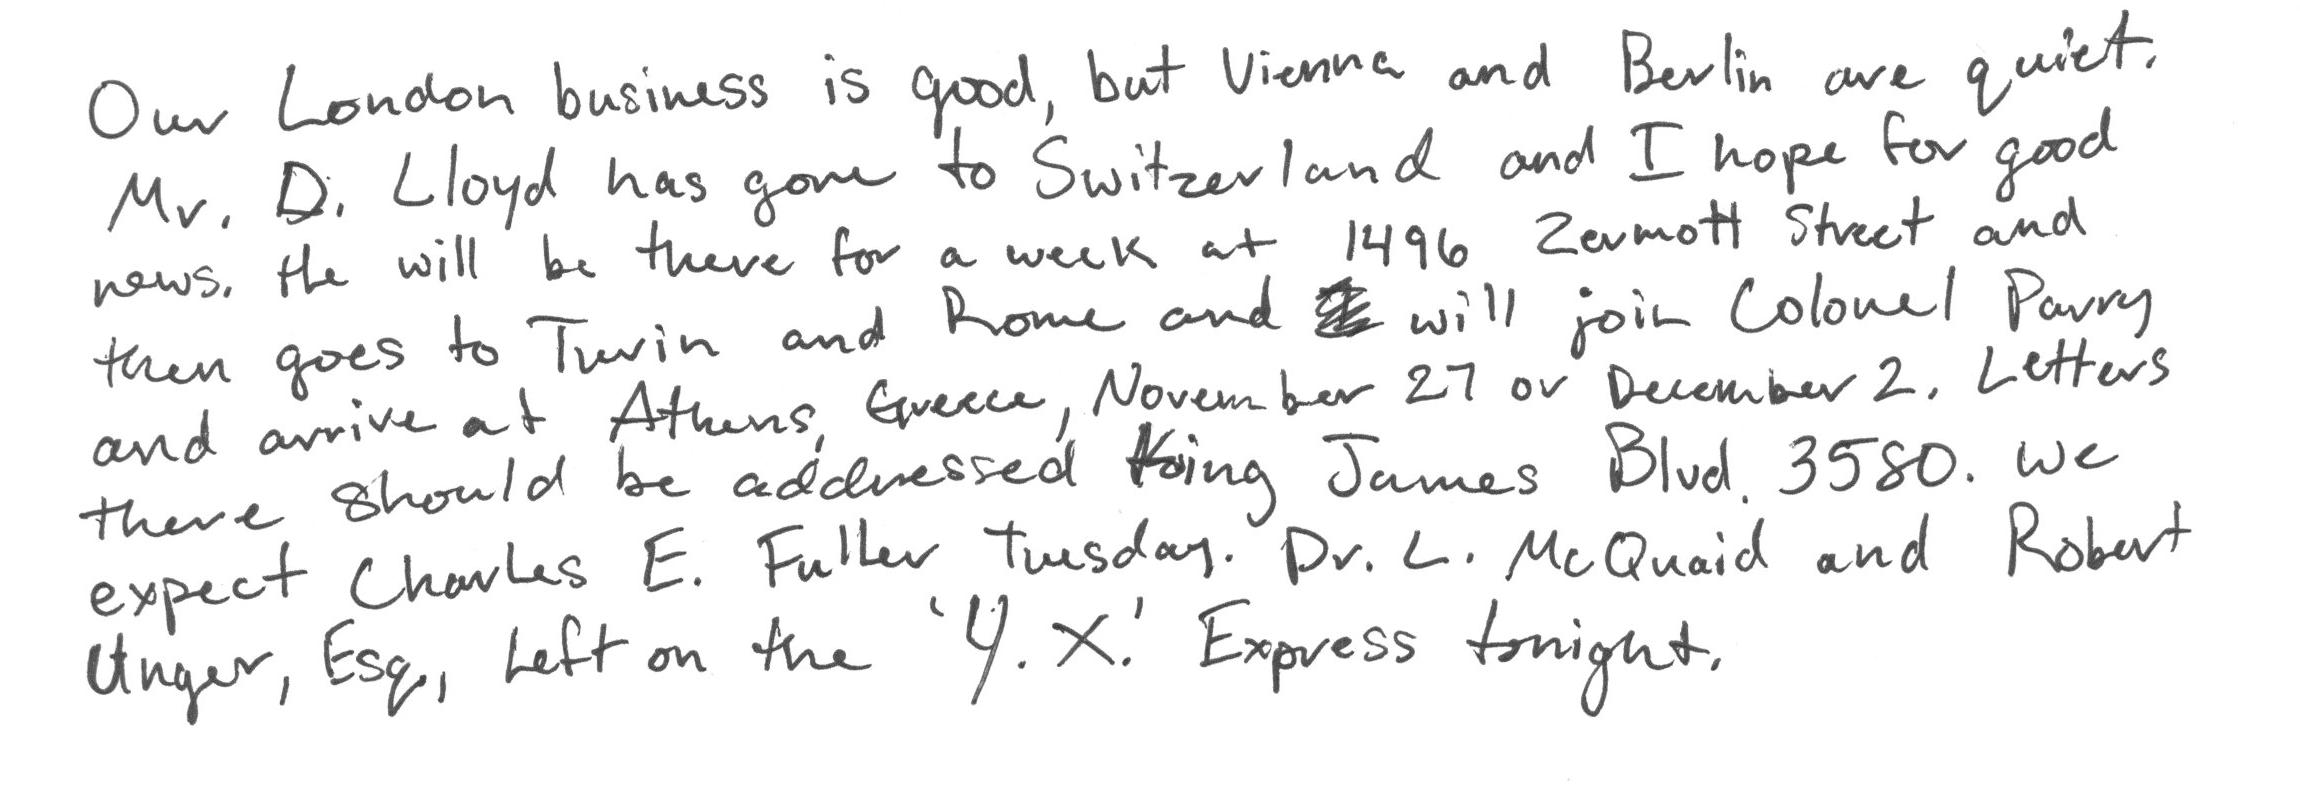 Our London business is good, but Vienna and Berlin are quiet.
Mr. D. Lloyd has gone to Switzerland and I hope for good
news. He will be there for a week at 1496 Zermott Street and
then goes to Turin and Rome and will join Colonel Parry
and arrive at Athens, Greece, November 27 or December 2. Letters
there should be addressed King James Blvd. 3580. We
expect Charles E. Fuller Tuesday. Dr. L. McQuaid and Robert
Unger, Esq., Left on the 'Y. X.' Express tonight.